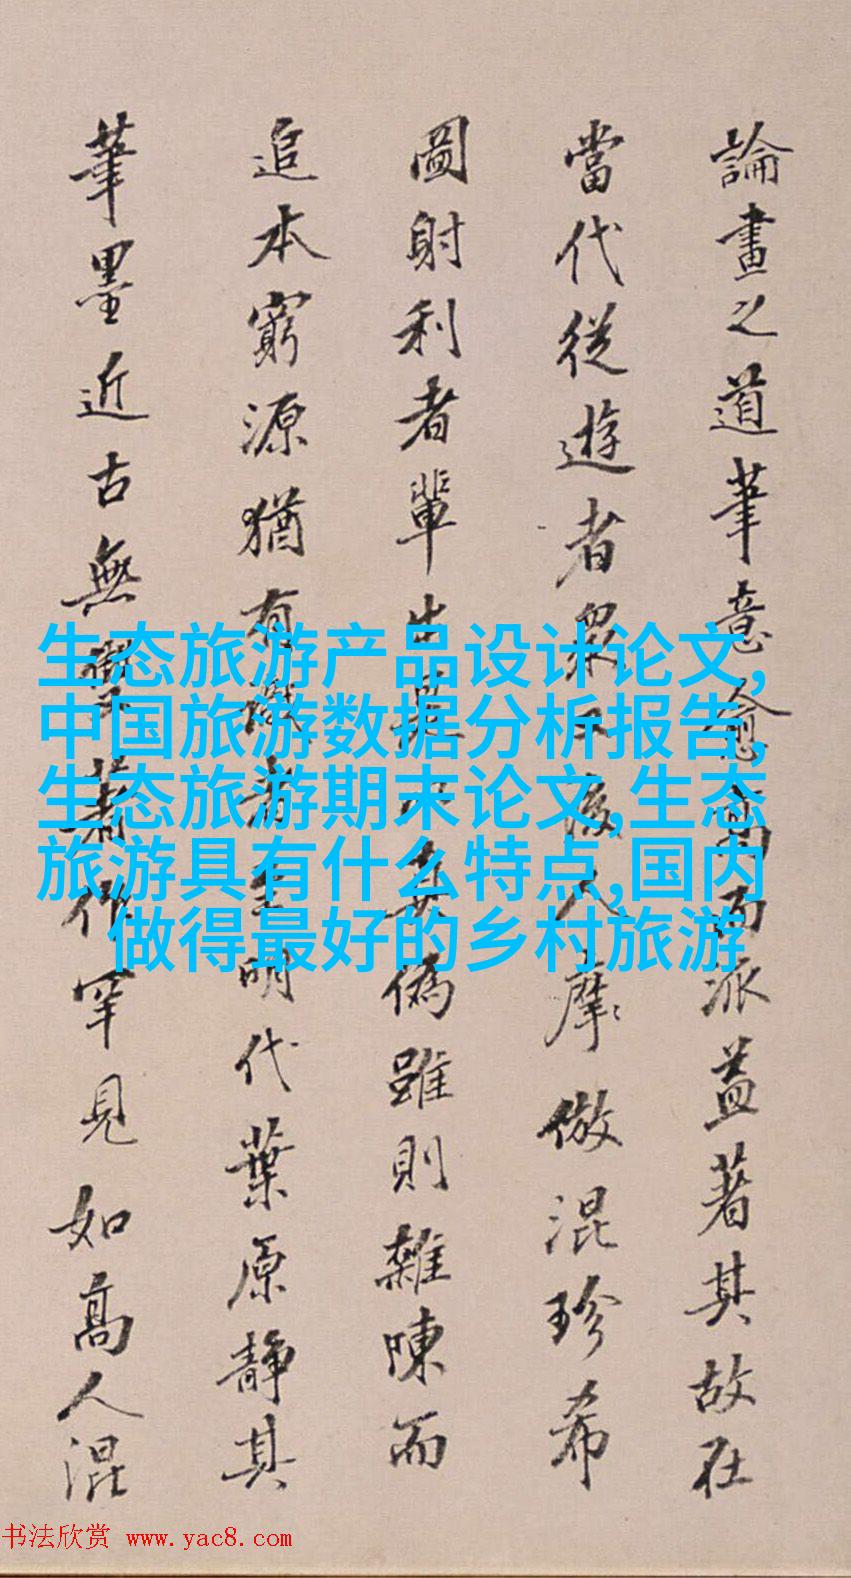 論畫之道筆意愈高而派益著其故在
當代從遊者眾後人摩倣混珍希
圖射利者輩出偽雖則雜陳而
追本窮源猶有識者明代葉原靜其
筆墨近古無著作罕見如高人混
生态旅游产品设计论文,
中国旅游数据分析报告,
生态旅游期末论文,生态
旅游具有什么特点,国内
做得最好的乡村旅游
书法欣赏 www.yac8.com